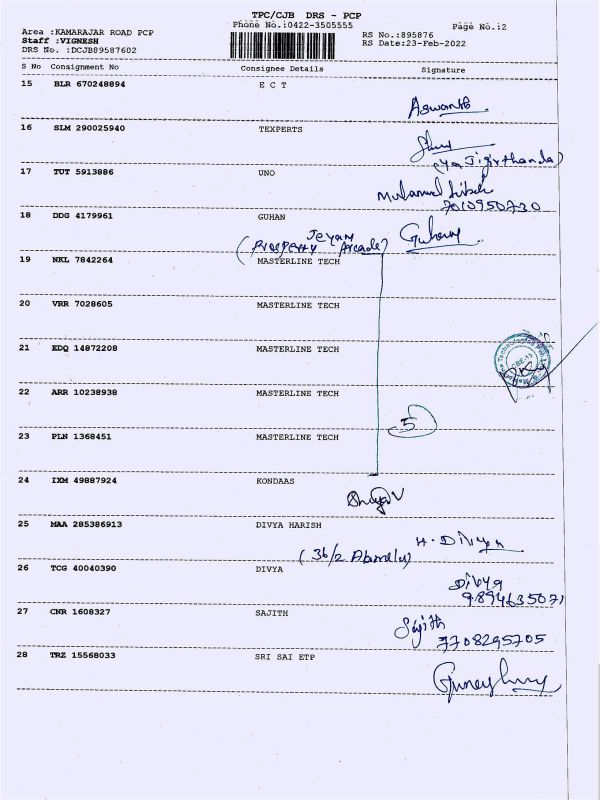 TPC/CJB DRS - PCP
Phone No.:0422-3505555
Page No.:2
Area :KAMARAJAR ROAD PCP
Staff :VIGNESH
DRS No. :DCJB89587602
RS No.:895876
RS Date:23-Feb-2022
S No Consignment No Consignee Details Signature
15 BLR 670248894 E C T
Aswanth
16 SLM 290025940 TEXPERTS
17 TUT 5913886 UNO
7010950730
18 DDG 4179961 GUHAN
Guhan
(Prosperity Jeyam Arcade)
19 NKL 7842264 MASTERLINE TECH
20 VRR 7028605 MASTERLINE TECH
21 EDQ 14872208 MASTERLINE TECH
22 ARR 10238938 MASTERLINE TECH
5
23 PLN 1368451 MASTERLINE TECH
24 IXM 49887924 KONDAAS
25 MAA 285386913 DIVYA HARISH
H. Divya
(36/2
26 TCG 40040390 DIVYA
Divya
9894635071
27 CNR 1608327 SAJITH
Sajith
7708295705
28 TRZ 15568033 SRI SAI ETP